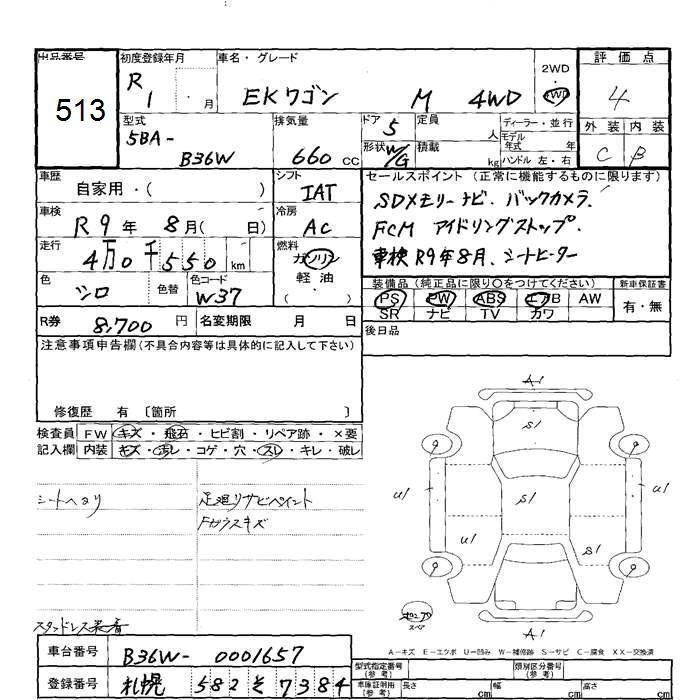 出品番号 初度登録年月 車名・グレード 2WD 評価点
513 R1 ・ 月 EKワゴン M 4WD ・ 4WD 4
型式 排気量 ドア 5 定員 人 ディーラー・並行 外装 内装
5BA- B36W 660 CC 形状 W/G 積載 kg モデル年式 年 ハンドル 左・右 C B
車歴 自家用・( ) シフト IAT セールスポイント(正常に機能するものに限ります)
車検 R9年8月( 日) 冷房 AC SDメモリーナビ. バックカメラ.
走行 4万0千550km 燃料 ガソリン FCM アイドリングストップ.
軽油 ・( ) 車検R9年8月、シートヒーター
色 シロ 色替 色コード W37 装備品(純正品に限り○をつけてください) 新車保証書
PS PW ABS エアB AW 有・無
R券 8,700円 名変期限 月 日 SR ナビ TV カワ
注意事項申告欄(不具合内容等は具体的に記入して下さい) 後日品
修復歴 有 〔箇所 〕
検査員 FW キズ・飛石・ヒビ割・リペア跡・×要
記入欄 内装 キズ・汚レ・コゲ・穴・スレ・キレ・破レ
シートヘタリ 足廻リサビペイント
Fガラスキズ
スタッドレス装着
A1
S1
U1 S1 U1
U1 S1
A1
スペア
A-キズ E-エクボ U-凹み W-補修跡 S-サビ C-腐食 XX-交換済
車台番号 B36W-0001657 型式指定番号(参考) 類別区分番号(参考)
登録番号 札幌 582 そ 7384 車庫証明用(参考) 長さ cm 幅 cm 高さ cm